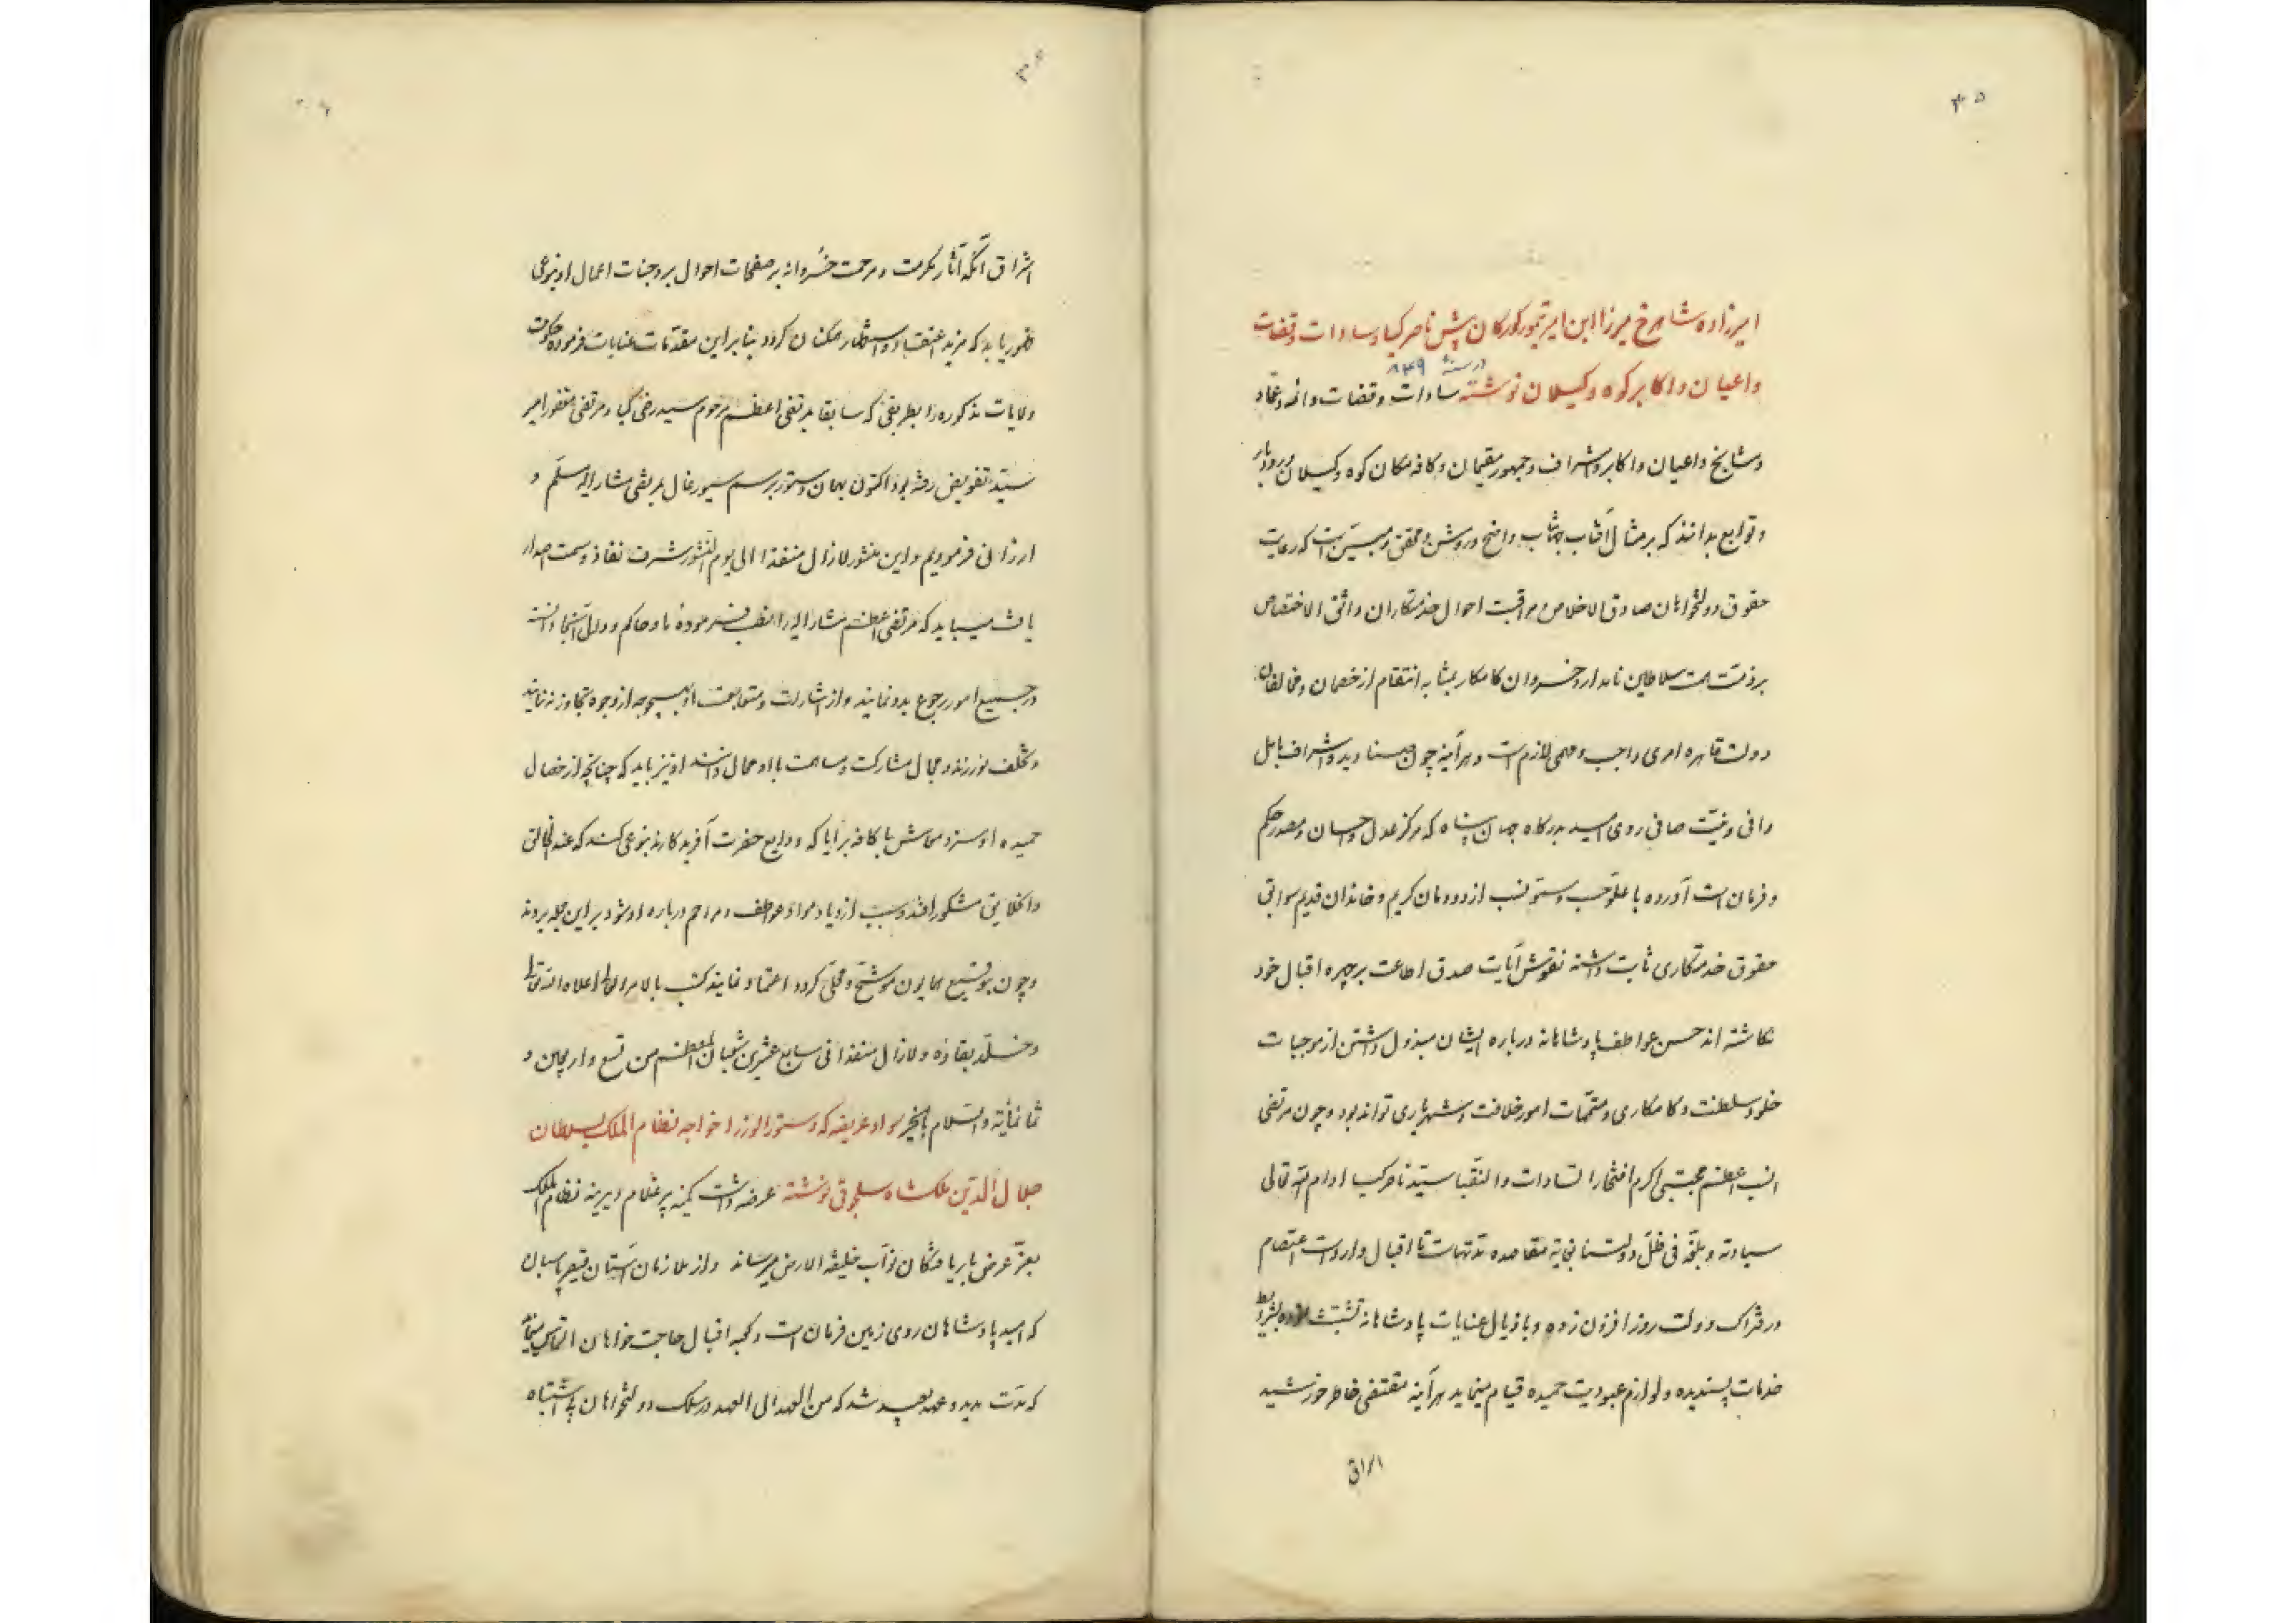 ۳۵
امیرزاده شاهرخ میرزا ابن امیر تیمور کورکان پیش ناصر کیا و سادات و قضات
در سنهٔ ۸۴۹
واعیان و اکابر کوه و کیلان نوشته سادات و قضات و ائمه و علما
و مشایخ و اعیان و اکابر و اشراف و جمهور مقیمان و کافه سکان کوه و کیلان و رودبار
و توابع بدانند که بر مثال آفتاب جهانتاب واضح و روشن و محقق و مبین است که رعایت
حقوق دولتخواهان صادق الاخلاص و مراقبت احوال خدمتکاران واثق الاختصاص
بر ذمت همت سلاطین نامدار و خسروان کامکار بمثابه انتقام از خصمان و مخالفان
دولت قاهره امری واجب و مهمی لازم است و هر آینه چون صنادید و اشراف بامل
وافی و نیت صافی روی امید بدرکاه جهان پناه که مرکز عدل و احسان و مصدر حکم
و فرمان است آورده با علو حسب و سمو نسب از دودمان کریم و خاندان قدیم سوابق
حقوق خدمتکاری ثابت داشته نقوش آیات صدق اطاعت بر چهره اقبال خود
نکاشته اند حسن عواطف پادشاهانه درباره ایشان مبذول داشتن از موجبات
خلود سلطنت و کامکاری و متممات امور خلافت و شهریاری تواند بود و چون مرتضی
انسب اعظم مجتبی اکرم افتخار السادات و النقبا سید ناصر کیا ادام الله تعالی
سیادته و بلغه فی ظل دولتنا نهایة مقاصده مدتهاست تا اقبال وار دست اعتصام
در فتراک دولت روز افزون زده و باذیال عنایات پادشاهانه تشبث بشرایط
خدمات پسندیده و لوازم عبودیت حمیده قیام مینماید هر آینه مقتضی خاطر خورشید
اشراق
۳۶
اشراق آنکه آثار مکرمت و مرحمت خسروانه بر صفحات احوال بر وجنات اعمال او بنوعی
ظهور یابد که مزید اعتقاد و استظهار همکنان کردد بنابراین مقدمات عنایات فرموده حکومت
ولایات مذکوره را بطریقی که سابقا بمرتضی اعظم مرحوم سید رضی کیا و مرتضی مغفور امیر
سید تفویض رفته بود اکنون بهمان دستور برسم سیورغال بمرتضی مشار الیه مسلم و
ارزانی فرمودیم و این منشور لازال منفذا الی یوم النشور شرف نفاذ و سمت اصدار
یافت میباید که مرتضی اعظم مشار الیه را منصب فرموده ما و حاکم و والی آنجا دانسته
در جمیع امور رجوع بدو نمایند و از اشارت و متابعت او بهیچوجه از وجوه تجاوز ننمایند
و تخلف نورزند و مجال مشارکت و مساهمت با او محال دانند او نیز باید که چنانچه از خصال
حمیده او سزد معاش با کافه برایا که ودایع حضرت آفریدکارند بنوعی کند که عند الخالق
و الخلایق مشکور افتد و سبب ازدیاد مواد عواطف و مراحم درباره او شود بر این جمله بروند
و چون بتوقیع همایون موشح و محلی کردد اعتماد نمایند کتب بالامر العالی اعلاه الله تعالی
و خلد بقاؤه و لازال منفذا فی سابع عشرین شعبان المعظم من تسع و اربعین و
ثمانمائة و السلام بالخیر سواد عریضه که دستور الوزرا خواجه نظام الملک بسلطان
جلال الدین ملکشاه سلجوقی نوشته عرضه داشت کمینه پیر غلام دیرینه نظام الملک
بعز عرض باریافتکان نواب خلیفة الارض میرساند و از ملازمان آستان قیصر پاسبان
که امید پادشاهان روی زمین فرمان است و کعبه اقبال حاجت خواهان التماس مینماید
که مدت مدید و عهد بعید شد که من العهد الی العهد در سلک دولتخواهان بی اشتباه